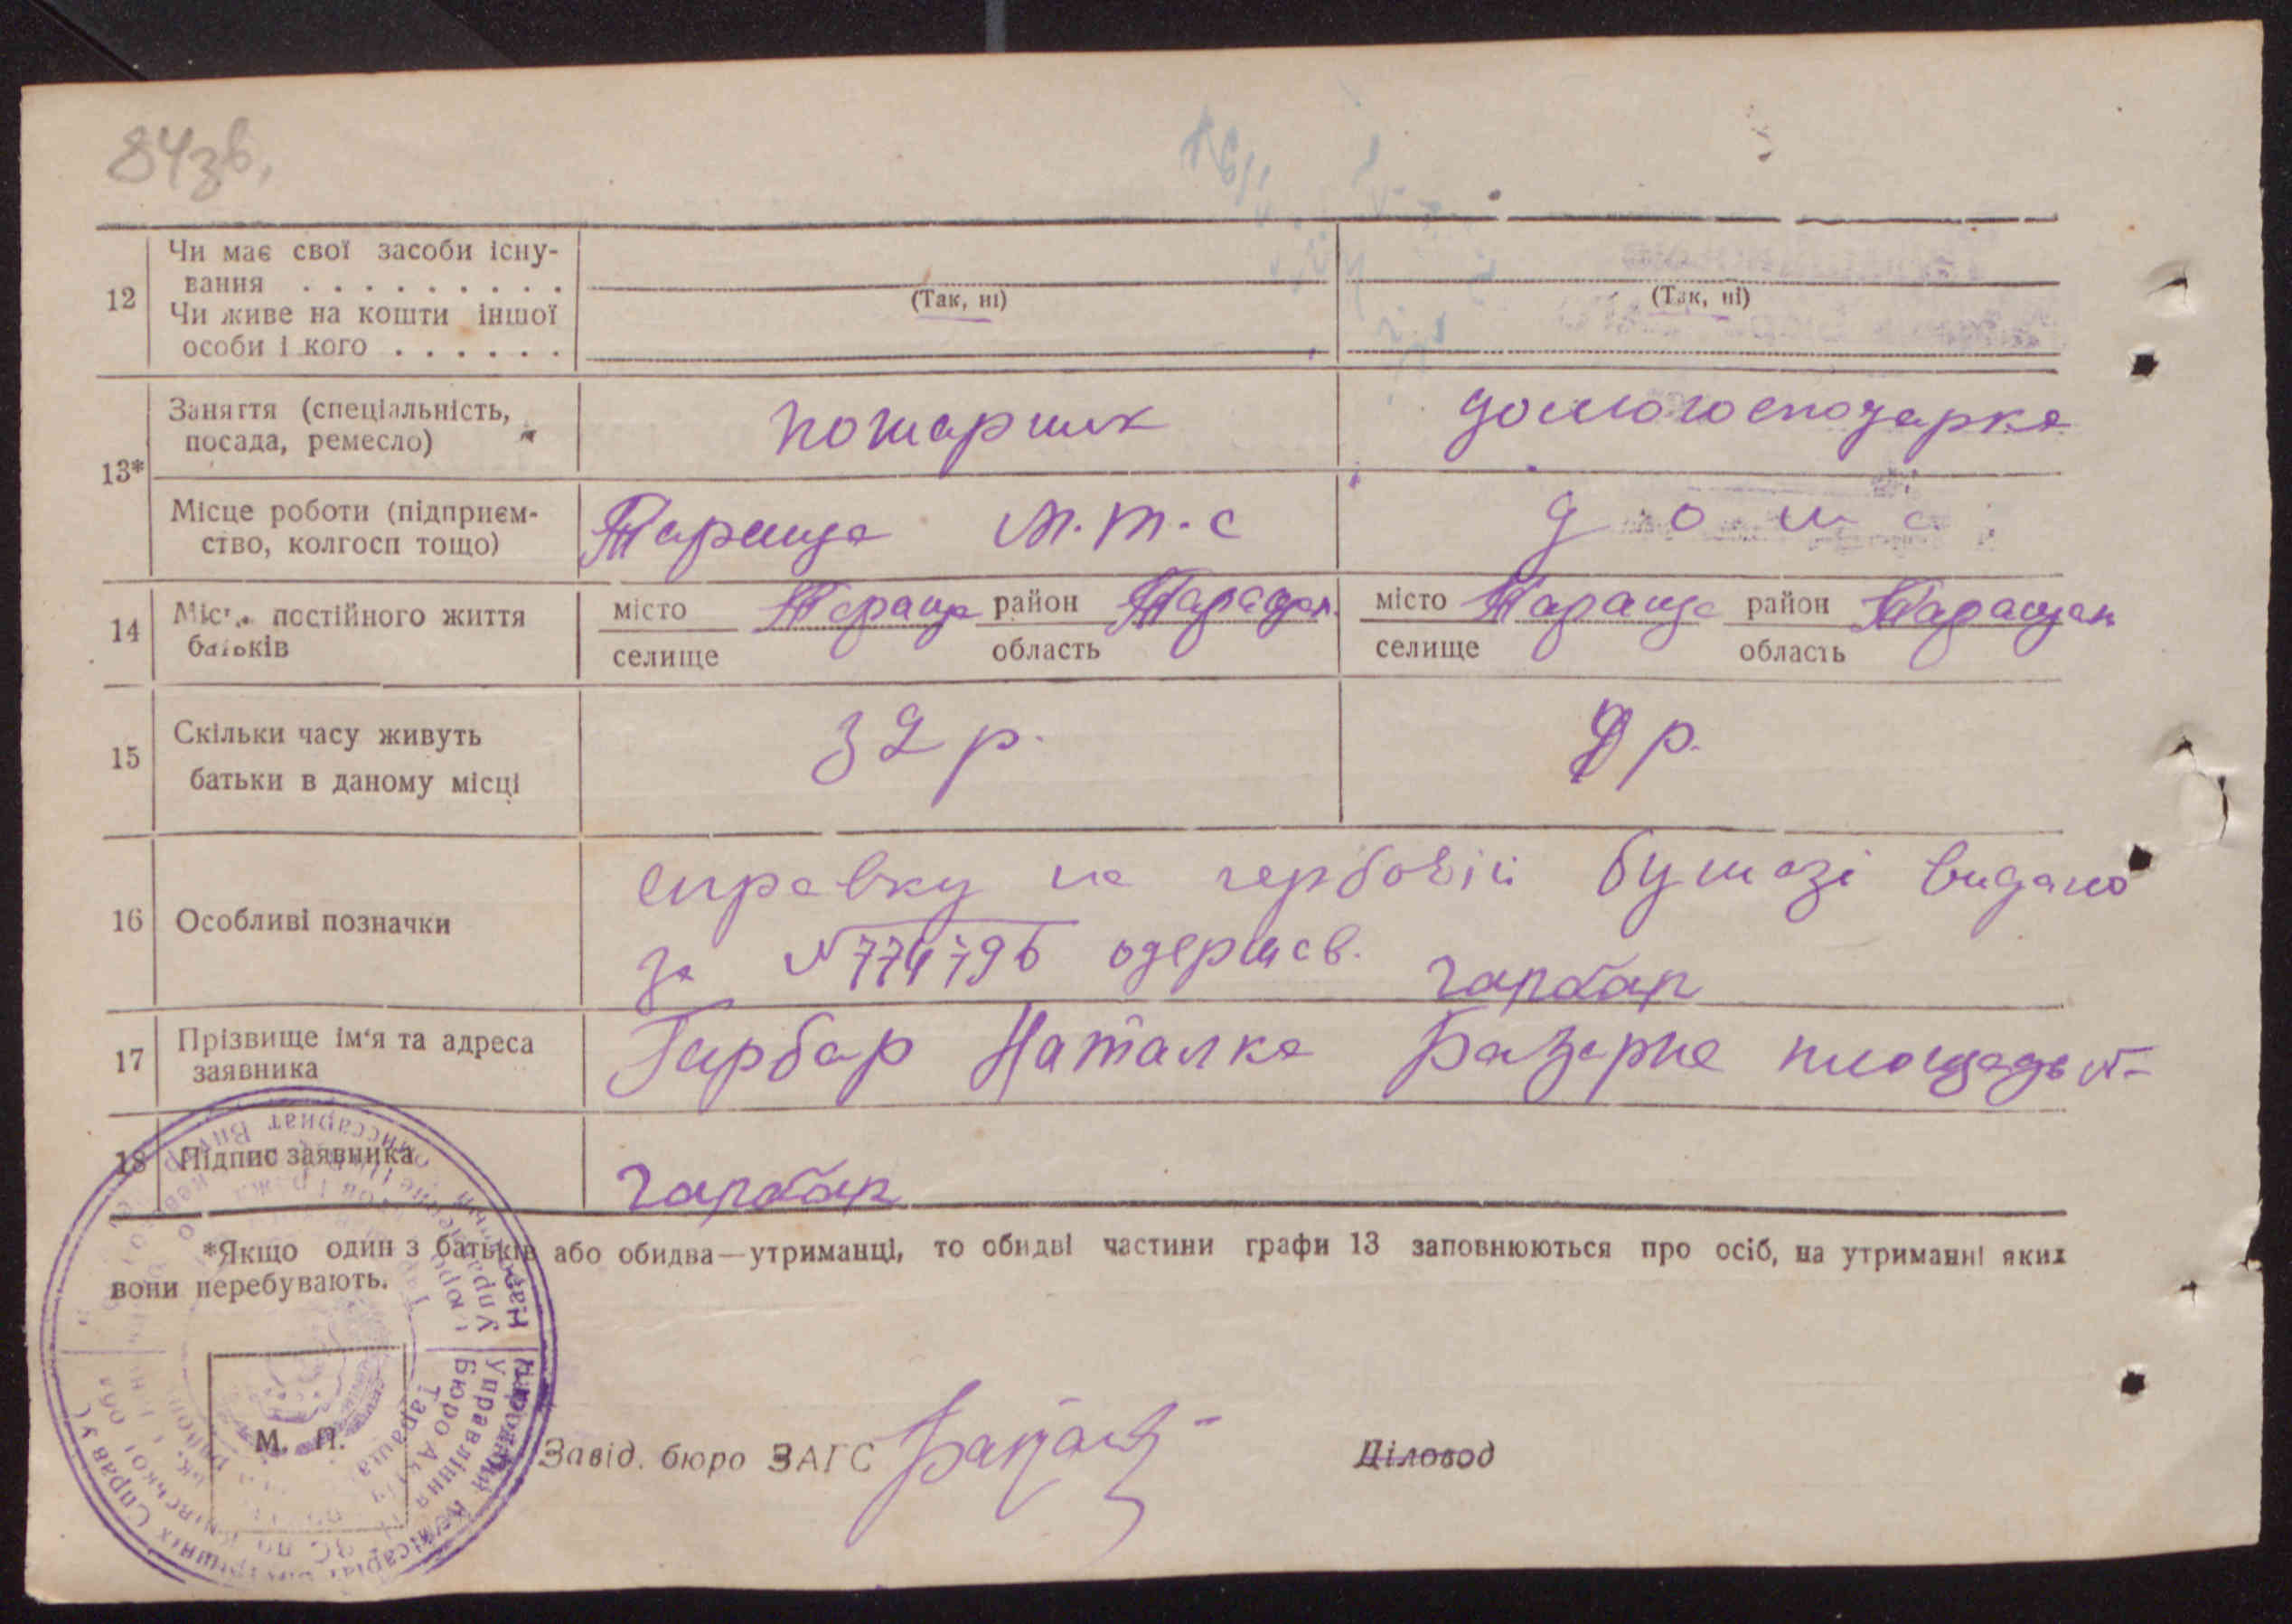 84зв.
12 Чи має свої засоби існу-
вання . . . . . . . . . .
(Так, ні) (Так, ні)
Чи живе на кошти іншої
особи і кого . . . . . .
13* Заняття (спеціальність, посада, ремесло) пожарник домогосподарка
Місце роботи (підприєм-
ство, колгосп тощо) Тараща М.Т.С дома
14 постійного життя
батьків
місто Тараща район Таращан. місто Тараща район Таращан
селище область селище область
15 Скільки часу живуть
батьки в даному місці
32 р. р.
16 Особливі позначки
справку на гербовій бумазі видано
за №774796 одержав. гарбар
17 Прізвище ім'я та адреса
заявника
Гарбар Наталка Базарна площадь №-
18 Підпис заявника гарбар
*Якщо один з батьків або обидва—утриманці, то обидві частини графи 13 заповнюються про осіб, на утриманні яких
вони перебувають.
М. П.
Завід. бюро ЗАГС
Діловод